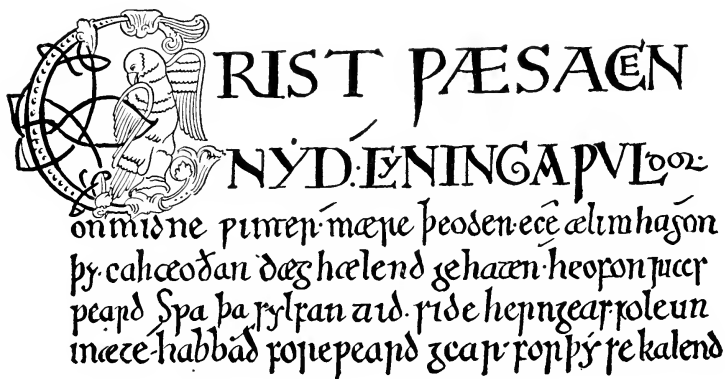 CRIST ǷÆS ACEN
NẎD· CYNINGA ǷVLDOR·
on midne ƿinter· mære þeoden· ece ælmihtig on
þy· eahteoðan dæg hælend gehaten· heofon ricer
ƿeard Sƿa þa sylfan tiid· side herigeas· folc un
mæte· habbað foreƿeard gear· forþy se kalend